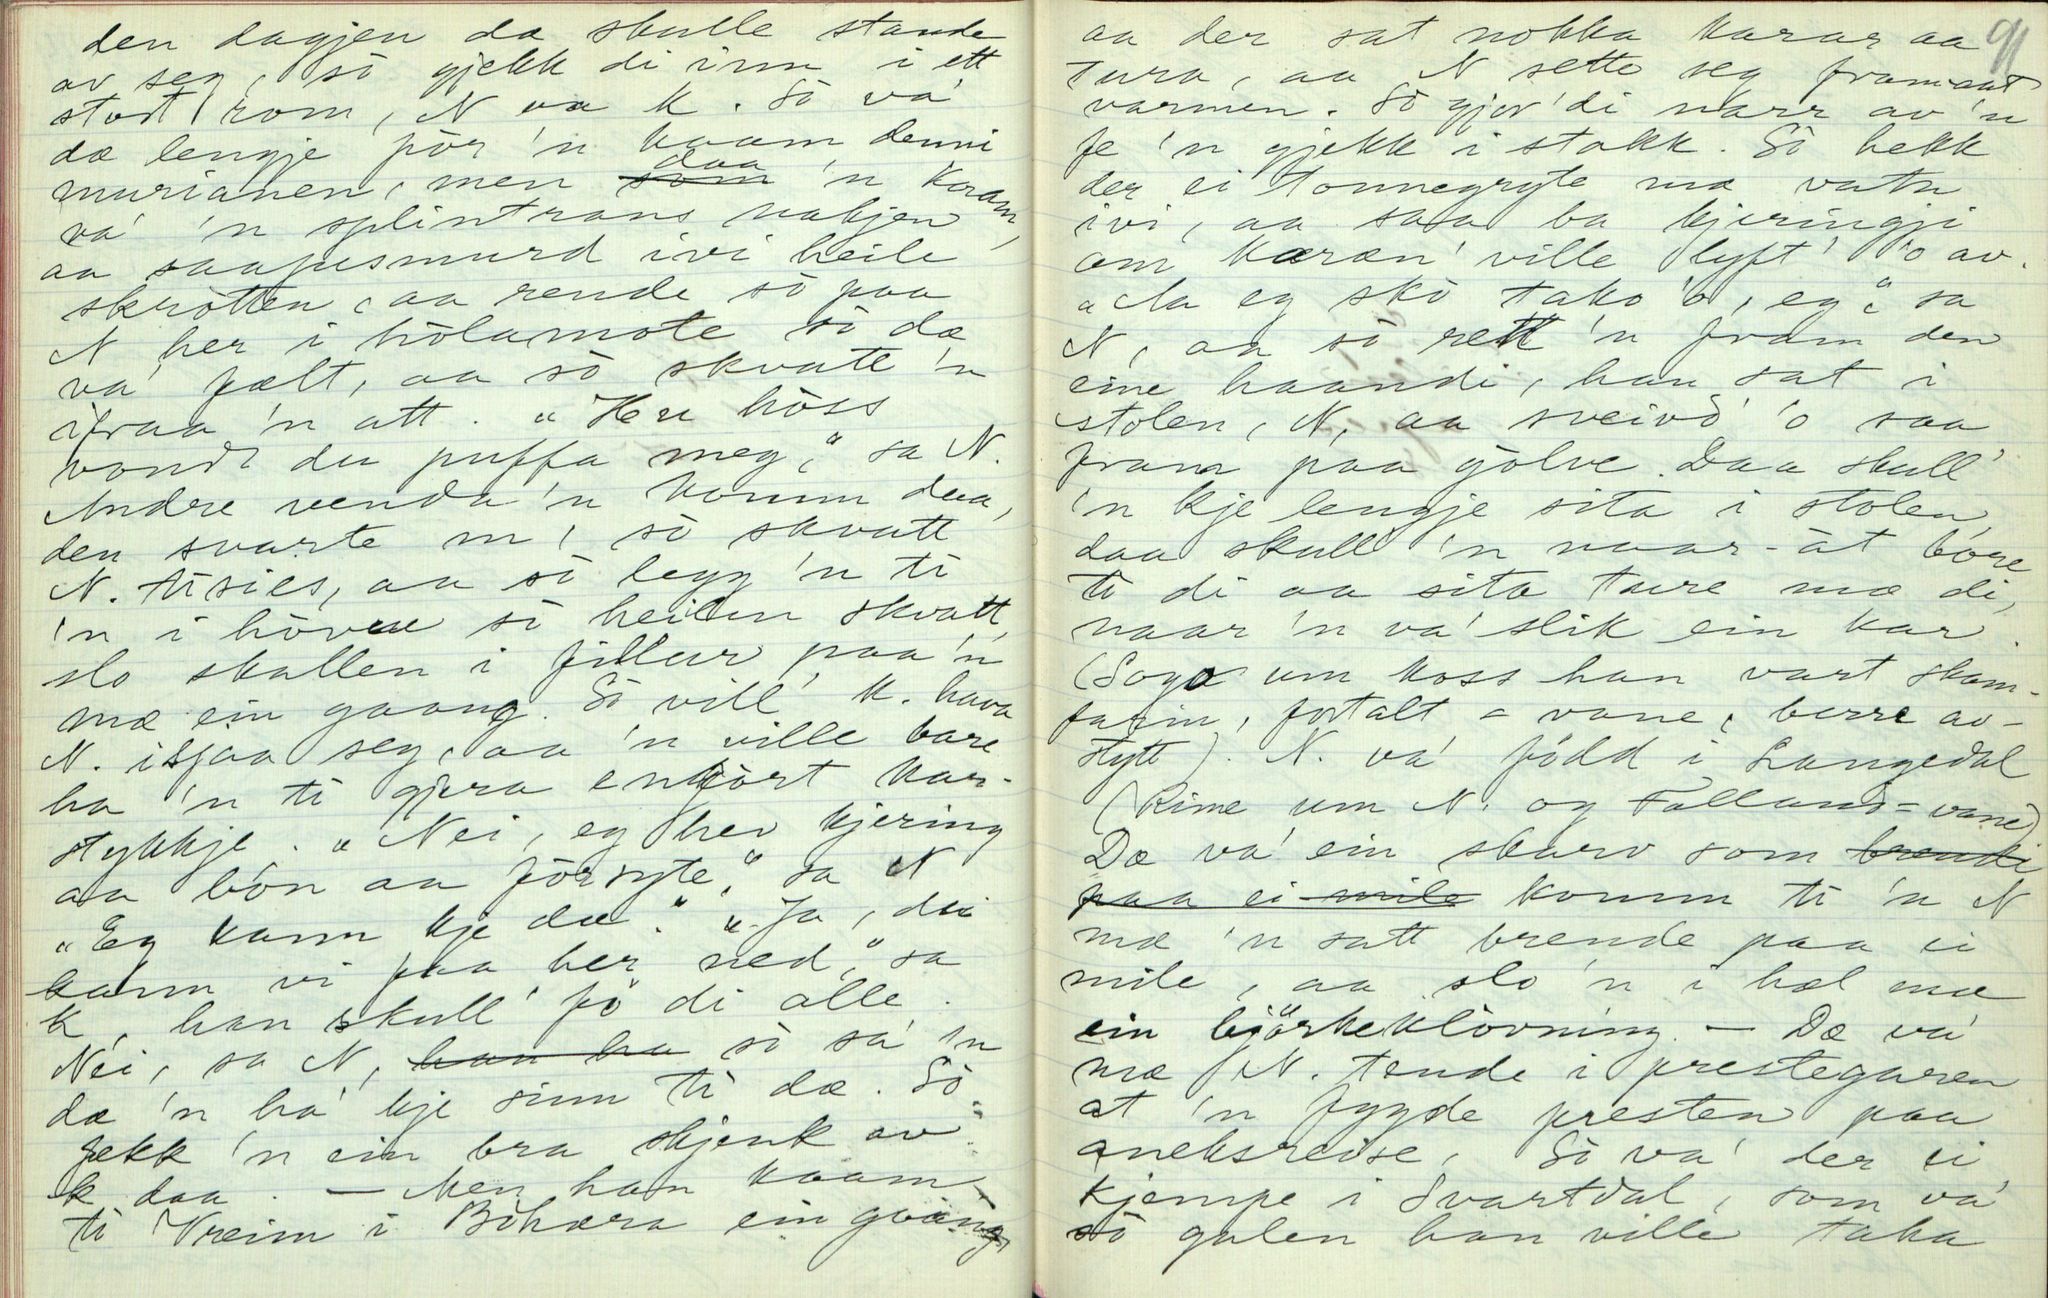 den dagjen da skulle stande
av seg, sò gjekk di inn i ett
stort rom, N aa K. Sò va'
dæ lengje för 'n kaam denni
murianen, men som daa 'n kaam,
va' 'n splintrans nakjen
aa saapesmurd ivi heile
skròtten, aa rende sò paa
N her i hòlamote sò dæ
va' fælt, aa sò skvatt 'n
ifraa 'n att. "Heu hòss
vondt du puffa meg," sa N.
Andre venda 'n komm daa,
den svarte m! sò skvatt
N. tisies, aa sò legg 'n ti
'n i hòvue sò heilen skvatt,
slo skallen i fillur paa 'n
mæ ein gaang. Sò vill' K. hava
N. ifraa seg, aa 'n ville bare
ha 'n ti gjera enkort kar-
stykkje. "Nei, eg hev kjering
aa bòn aa försyte," sa N
"Eg kann kje dæ." "Ja, dei
kann vi faa her ned," sa
K, han skull' fö di alle.
Nei, sa N, han ha sò sa 'n
dæ 'n ha' kje sinn ti dæ. Sò
fekk 'n ein bra skjenk av
K daa. — Men han kaam
ti Vreim i Bòhæra ein gaang
91
aa der sat nokka karar aa
tura, aa N sette seg framaat
varmen. Sò gjor' di narr av 'n
fe 'n gjekk i stakk. Sò hekk
der ei tonnegryte mæ vatn
ivi, aa saa ba kjeringji
om karæn' ville lyft' 'o av.
"Aa eg skò tak' 'o, eg," sa
N, aa sò rett 'n fram den
eine haandi, han sat i
stolen, N, aa sveivd' 'o saa
fram paa gòlve. Daa skull'
'n kje lengje sita i stolen,
daa skull 'n naar-åt bore
ti di aa sita ture mæ di,
naar 'n va' slik ein kar.
(Sogo um koss han vart skam-
farin, fortalt = vane, berre av-
stytt). N. va' född i Langedal
(Rime um N. og Falland = vane)
Dæ va' ein skarv som brendi
paa ei mile komm ti 'n N
mæ 'n satt brende paa ei
mile, aa slo 'n i hæl mæ
ein bjørkeklòvning. — Dæ va'
mæ N. tende i prestegaren
at 'n fygde presten paa
aneksreise. Sò va' der ei
kjempe i Svartdal, som va'
sò galen han ville taka